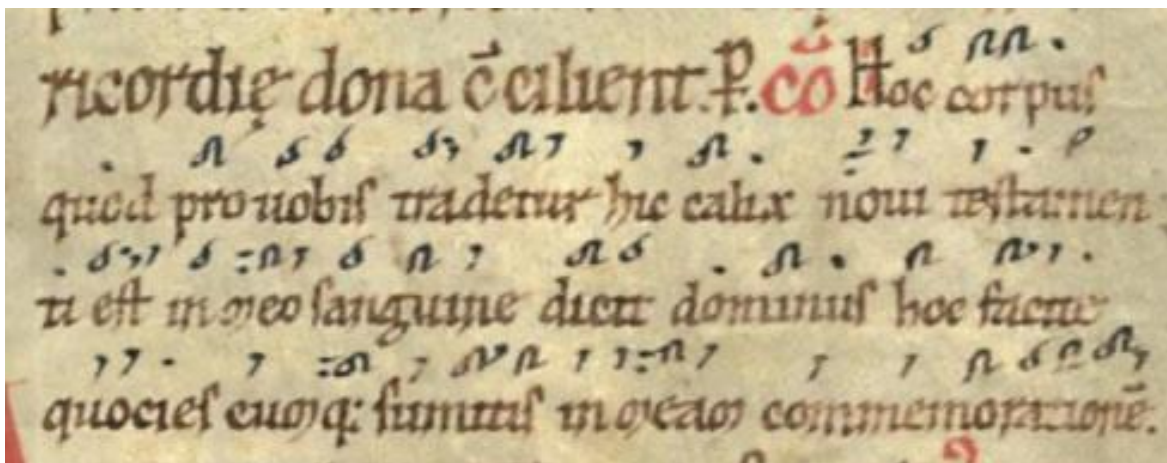 ricordię dona c̄cilient. P. Cō Hoc corpus
quod pro uobis tradetur hic calix noui testamen
ti est in meo sanguine dicit dominus hoc facite
quociens cumq: sumitis in meam commemorationē.